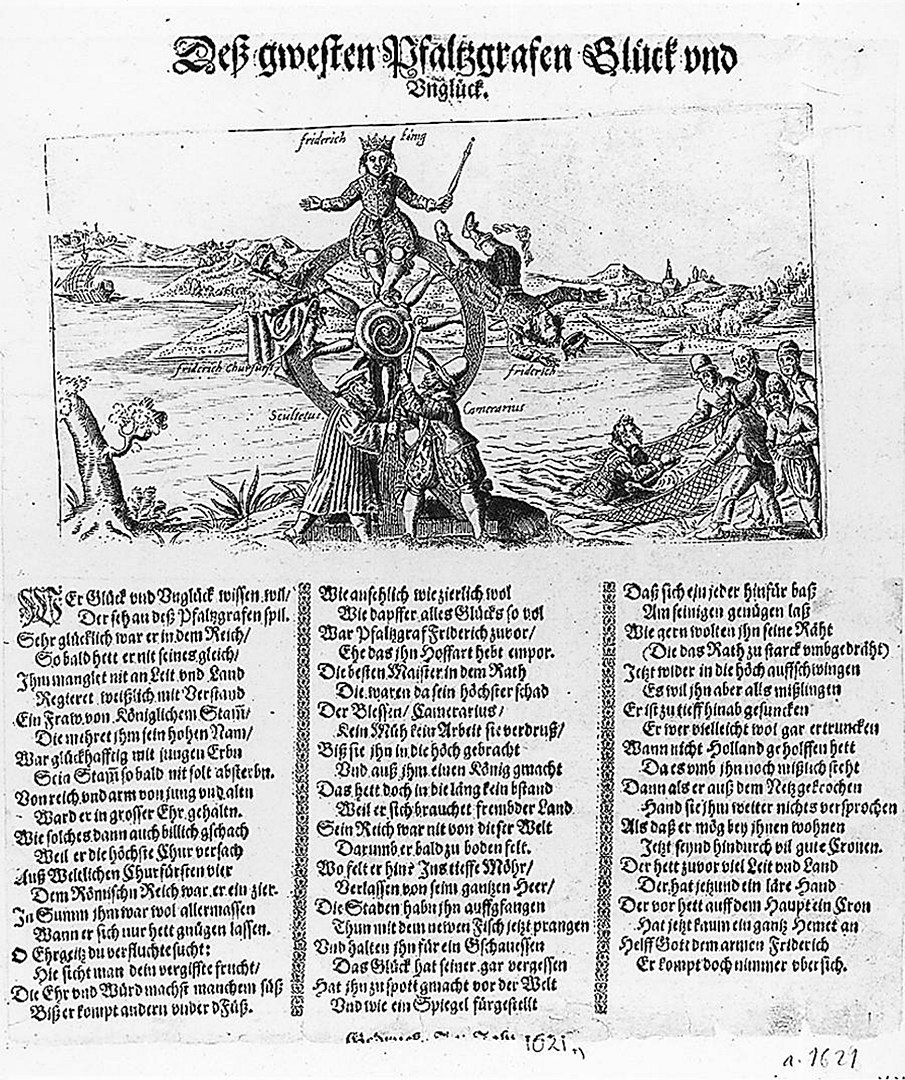 Deß gwesten Pfaltzgrafen Glück vnd
Vnglück.
friderich könig
friderich Churfürst
friderich
Scultetus
Camerarius
WEr Glück vnd Vnglück wissen wil/
Der seh an deß Pfaltzgrafen spil.
Sehr glücklich war er in dem Reich/
So bald hett er nit seines gleich/
Ihm manglet nit an Leit vnd Land
Regieret weißlich mit Verstand
Ein Fraw von Königlichem Stam̃/
Die mehret ihm sein hohen Nam/
War glückhafftig mit jungen Erbn
Sein Stam̃ so bald nit solt absterbn.
Von reich vnd arm von jung vnd alten
Ward er in grosser Ehr gehaltn.
Wie solches dann auch billich gschach
Weil er die höchste Chur versach
Auß Weltlichen Churfürsten vier
Dem Römischn Reich war er ein zier.
In Summ ihm war wol aller massen
Wann er sich nur hett gnügen lassen.
O Ehrgeitz du verfluchte sucht:
Hie sicht man dein vergiffte frucht/
Die Ehr vnd Würd machst manchem süß
Biß er kompt andern vnder d'Füß.
Wie ansehlich wie zierlich wol
Wie dapffer alles Glücks so vol
War Pfaltzgraf Friderich zuvor/
Ehe das ihn Hoffart hebt empor.
Die besten Maister in dem Rath
Die waren da sein höchster schad
Der Blessen/ Camerarius/
Kein Müh kein Arbeit sie verdruß/
Biß sie ihn in die höch gebracht
Vnd auß ihm einen König gmacht
Das hett doch in die läng kein bstand
Weil er sich brauchet frembder Land
Sein Reich war nit von dieser Welt
Darumb er bald zu boden felt.
Wo felt er hin? Ins tieffe Möhr/
Verlassen von seim gantzen Heer/
Die Staden habn ihn auffgfangen
Thun mit dem newen Fisch jetzt prangen
Vnd halten ihn für ein Gschauessen
Das Glück hat seiner gar vergessen
Hat ihn zu spott gmacht vor der Welt
Vnd wie ein Spiegel fürgestellt
Daß sich ein jeder hinfür baß
Am seinigen genügen laß
Wie gern wolten ihn seine Räht
(Die das Rath zu starck vmbgedräht)
Jetzt wider in die höch auffschwingen
Es wil ihn aber alls mißlingen
Er ist zu tieff hinab gesuncken
Er wer vielleicht wol gar ertruncken
Wann nicht Holland geholffen hett
Da es vmb ihn noch mißlich steht
Dann als er auß dem Netz gekrochen
Hand sie ihm weiter nichts versprochen
Als daß er mög bey ihnen wohnen
Jetzt seynd hindurch vil gute Cronen.
Der hett zuvor viel Leit vnd Land
Der hat jetzund ein läre Hand
Der vor hett auff dem Haupt ein Cron
Hat jetzt kaum ein gantz Hemet an
Helff Gott dem armen Friderich
Er kompt doch nimmer vbersich.
1621
a. 1621